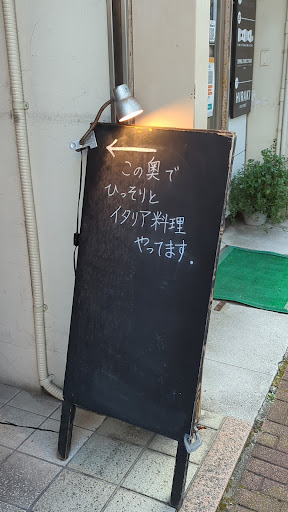 ←
この奥で
ひっそりと
イタリア料理
やってます.
HiRAKi